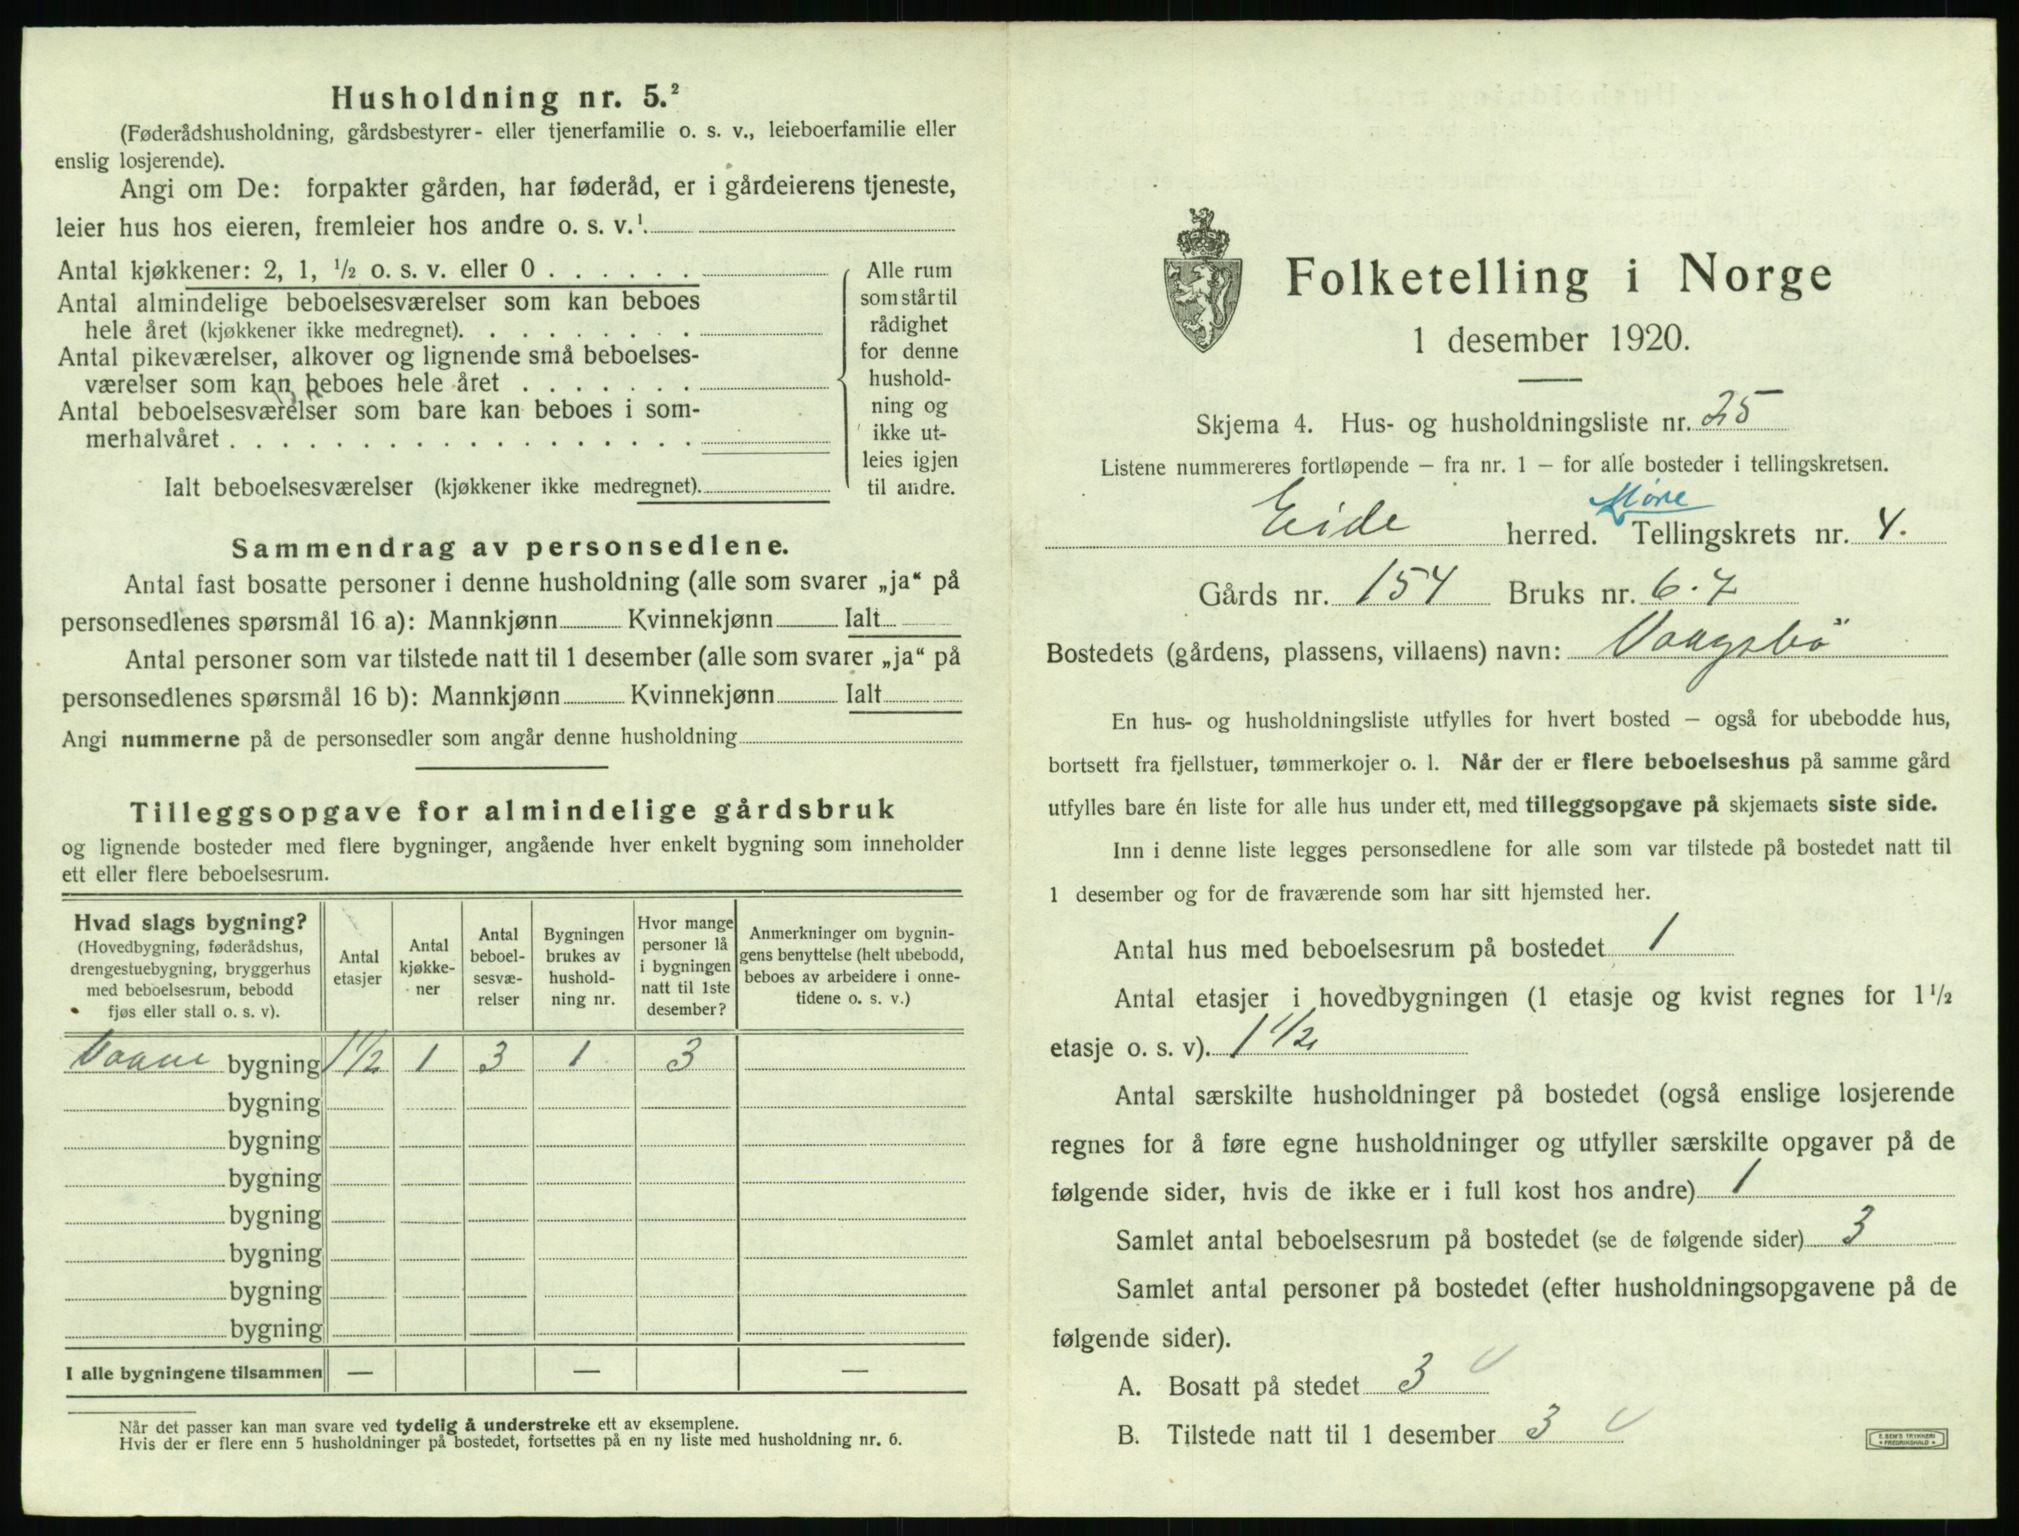 Husholdning nr. 5.²
(Føderådshusholdning, gårdsbestyrer- eller tjenerfamilie o. s. v., leieboerfamilie eller
enslig losjerende).
Angi om De: forpakter gården, har føderåd, er i gårdeierens tjeneste,
leier hus hos eieren, fremleier hos andre o. s. v.¹
Antal kjøkkener: 2, 1, ½ o. s. v. eller 0 . . . . . .
Antal almindelige beboelsesværelser som kan beboes
hele året (kjøkkener ikke medregnet). . . . . . . . .
Antal pikeværelser, alkover og lignende små beboelses-
værelser som kan beboes hele året . . . . . . .
Antal beboelsesværelser som bare kan beboes i som-
merhalvåret . . . . . . . . . . . . . . . . . .
Ialt beboelsesværelser (kjøkkener ikke medregnet).
Alle rum
som står til
rådighet
for denne
hushold-
ning og
ikke ut-
leies igjen
til andre.
Sammendrag av personsedlene.
Antal fast bosatte personer i denne husholdning (alle som svarer „ja“ på
personsedlenes spørsmål 16 a): Mannkjønn Kvinnekjønn Ialt
Antal personer som var tilstede natt til 1 desember (alle som svarer „ja“ på
personsedlenes spørsmål 16 b): Mannkjønn Kvinnekjønn Ialt
Angi nummerne på de personsedler som angår denne husholdning
Tilleggsopgave for almindelige gårdsbruk
og lignende bosteder med flere bygninger, angående hver enkelt bygning som inneholder
ett eller flere beboelsesrum.
Hvad slags bygning?
(Hovedbygning, føderådshus,
drengestuebygning, bryggerhus
med beboelsesrum, bebodd
fjøs eller stall o. s. v).
Antal
etasjer
Antal
kjøkke-
ner
Antal
beboel-
sesvæ-
relser
Bygningen
brukes av
hushold-
ning nr.
Hvor mange
personer lå
i bygningen
natt til 1ste
desember?
Anmerkninger om bygnin-
gens benyttelse (helt ubebodd,
beboes av arbeidere i onne-
tidene o. s. v.)
Vaane bygning 1½ 1 3 1 3
bygning
bygning
bygning
bygning
bygning
bygning
bygning
I alle bygningene tilsammen — — —
Når det passer kan man svare ved tydelig å understreke ett av eksemplene.
Hvis der er flere enn 5 husholdninger på bostedet, fortsettes på en ny liste med husholdning nr. 6.
Folketelling i Norge
1 desember 1920.
Skjema 4. Hus- og husholdningsliste nr. 25
Listene nummereres fortløpende – fra nr. 1 – for alle bosteder i tellingskretsen.
Møre
Eide herred. Tellingskrets nr. 4.
Gårds nr. 154 Bruks nr. 6.7
Bostedets (gårdens, plassens, villaens) navn: Vaagsbö
En hus- og husholdningsliste utfylles for hvert bosted – også for ubebodde hus,
bortsett fra fjellstuer, tømmerkojer o. l. Når der er flere beboelseshus på samme gård
utfylles bare én liste for alle hus under ett, med tilleggsopgave på skjemaets siste side.
Inn i denne liste legges personsedlene for alle som var tilstede på bostedet natt til
1 desember og for de fraværende som har sitt hjemsted her.
Antal hus med beboelsesrum på bostedet 1
Antal etasjer i hovedbygningen (1 etasje og kvist regnes for 1½
etasje o. s. v). 1½
Antal særskilte husholdninger på bostedet (også enslige losjerende
regnes for å føre egne husholdninger og utfyller særskilte opgaver på de
følgende sider, hvis de ikke er i full kost hos andre) 1
Samlet antal beboelsesrum på bostedet (se de følgende sider) 3
Samlet antal personer på bostedet (efter husholdningsopgavene på de
følgende sider).
A. Bosatt på stedet 3
B. Tilstede natt til 1 desember 3
E. SEM'S TRYKKERI
FREDRIKSHALD